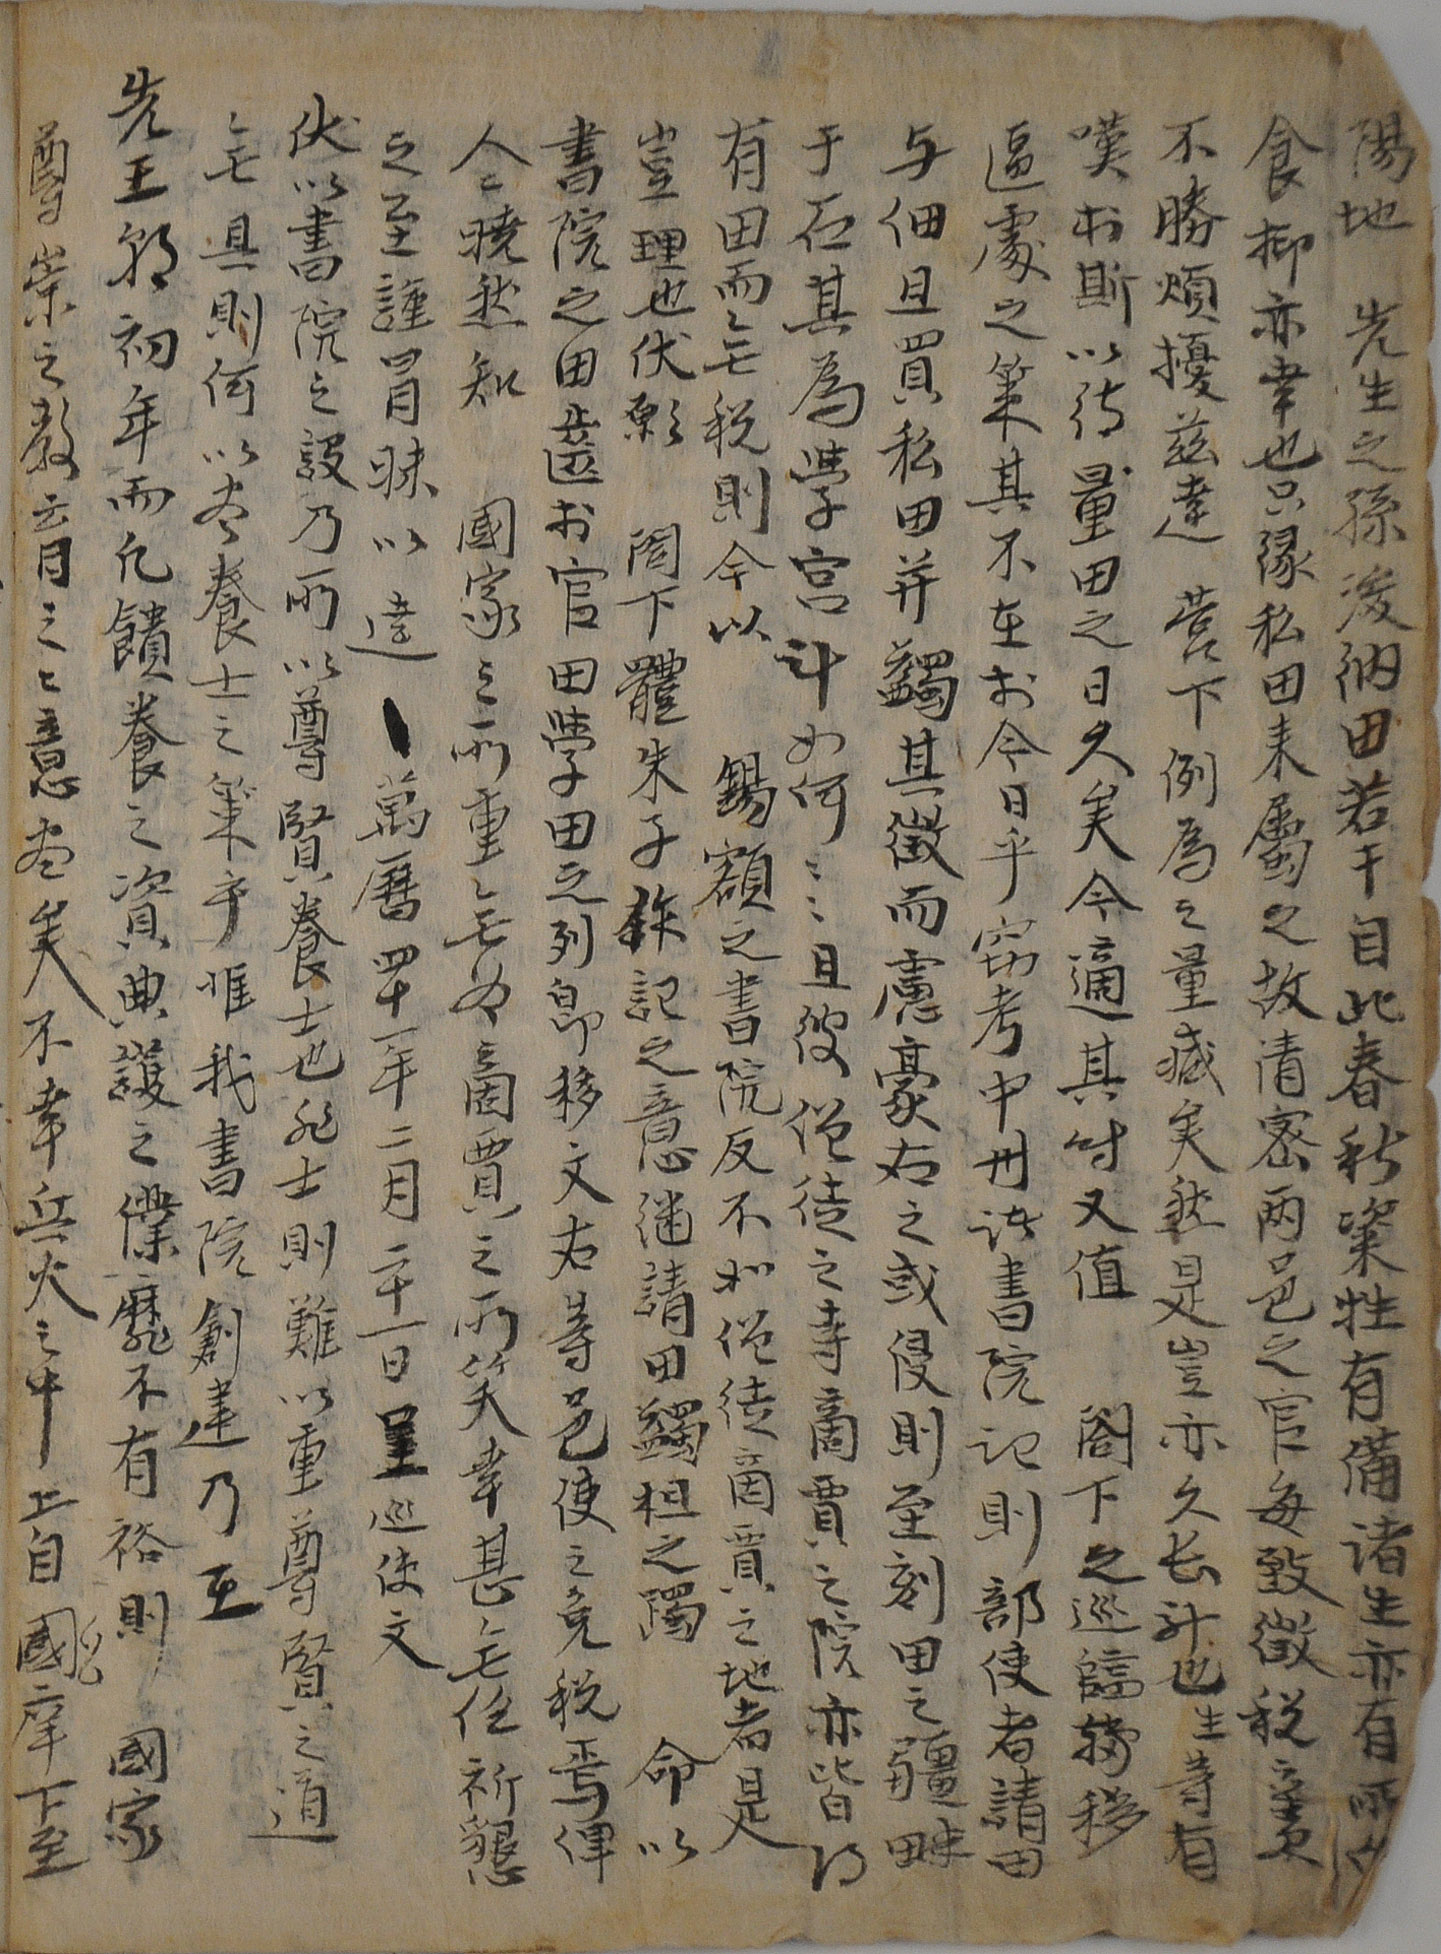 陽地 先生之孫浚納田若干自此春秋粢牲有備諸生亦有所
食抑亦幸也只緣私田未屬之故清密兩邑之官每致徵稅 吏
不勝煩擾茲達 營下例爲之量减矣然是豈亦久長計也生等有
嘆於斯以待量田之日久矣今適其时又值 閤下之巡臨 移
區處之策其不在於今日乎窃考中州諸書院記則部使者請田
与佃且買私田并蠲其徵而慮豪右之或侵則至刻田之疆畎
于石其爲學宮計如何〻〻且彼僧徒之寺商賈之院亦皆
有田而无稅則今以 錫額之書院反不如僧徒商賈之地者是
豈理也伏願 閤下體朱子 記之意遂請田蠲租之 命以
書院之田 於官田學田之列卽移文右等邑使之免稅焉俾
人〻曉然知 國家之所重无爲商賈之所笑幸甚无任祈懇
之至謹冒昧以達 萬曆四十一年二月二十一日呈巡使文
伏以書院之設乃所以尊賢養士也非士則難以重尊賢之道
无具則何以尽養士之策乎惟我書院創建乃在
先王朝初年而凡饋養之資典護之僕靡不有裕則 國家
尊崇之教 之〻意尽矣不幸兵火之中上自國庠下至